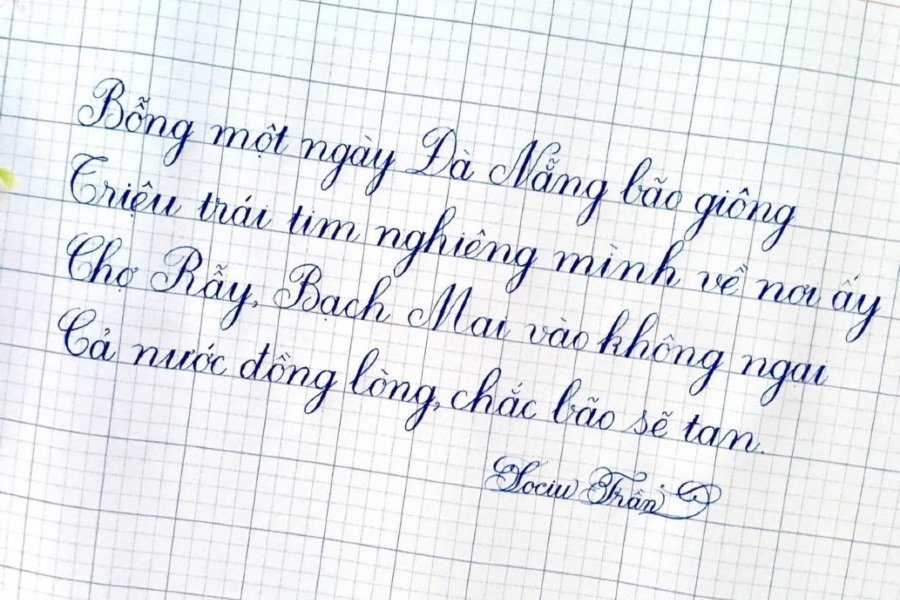 Bỗng một ngày Đà Nẵng bão giông
Triệu trái tim nghiêng mình về nơi ấy
Chợ Rẫy, Bạch Mai vào không ngại
Cả nước đồng lòng, chắc bão sẽ tan.
Sociu Trần